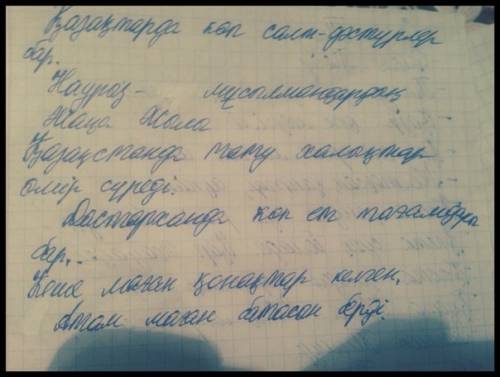 Қазақтарда көп салт-дәстүрлер
бар.
Наурыз - мұсылмандардың
Жаңа Жыла
Қазақстанда тату халықтар
өмір сүреді.
Дастарханда көп ет тағамдары
бар.
Кеше маған қонақтар келген.
Атам маған батасын берді.